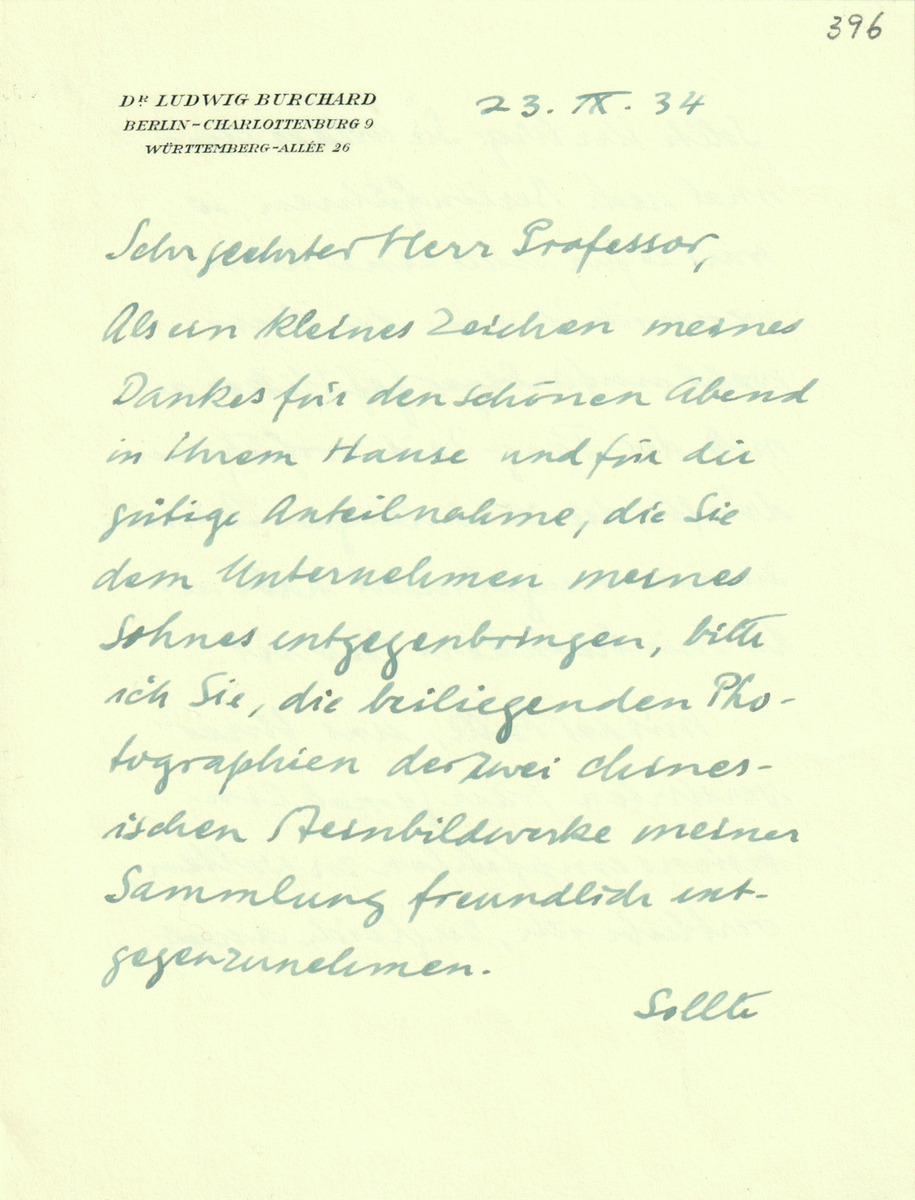 396
DR LUDWIG BURCHARD
BERLIN-CHARLOTTENBURG 9
WÜRTTEMBERG-ALLÉE 26
23. IX. 34
Sehr geehrter Herr Professor,
Als ein kleines Zeichen meines
Dankes für den schönen Abend
in Ihrem Hause und für die
gütige Anteilnahme, die Sie
dem Unternehmen meines
Sohnes entgegenbringen, bitte
ich Sie, die beiliegenden Pho-
tographien der zwei chines-
ischen Steinbildwerke meiner
Sammlung freundlich ent-
gegenzunehmen.
Sollte